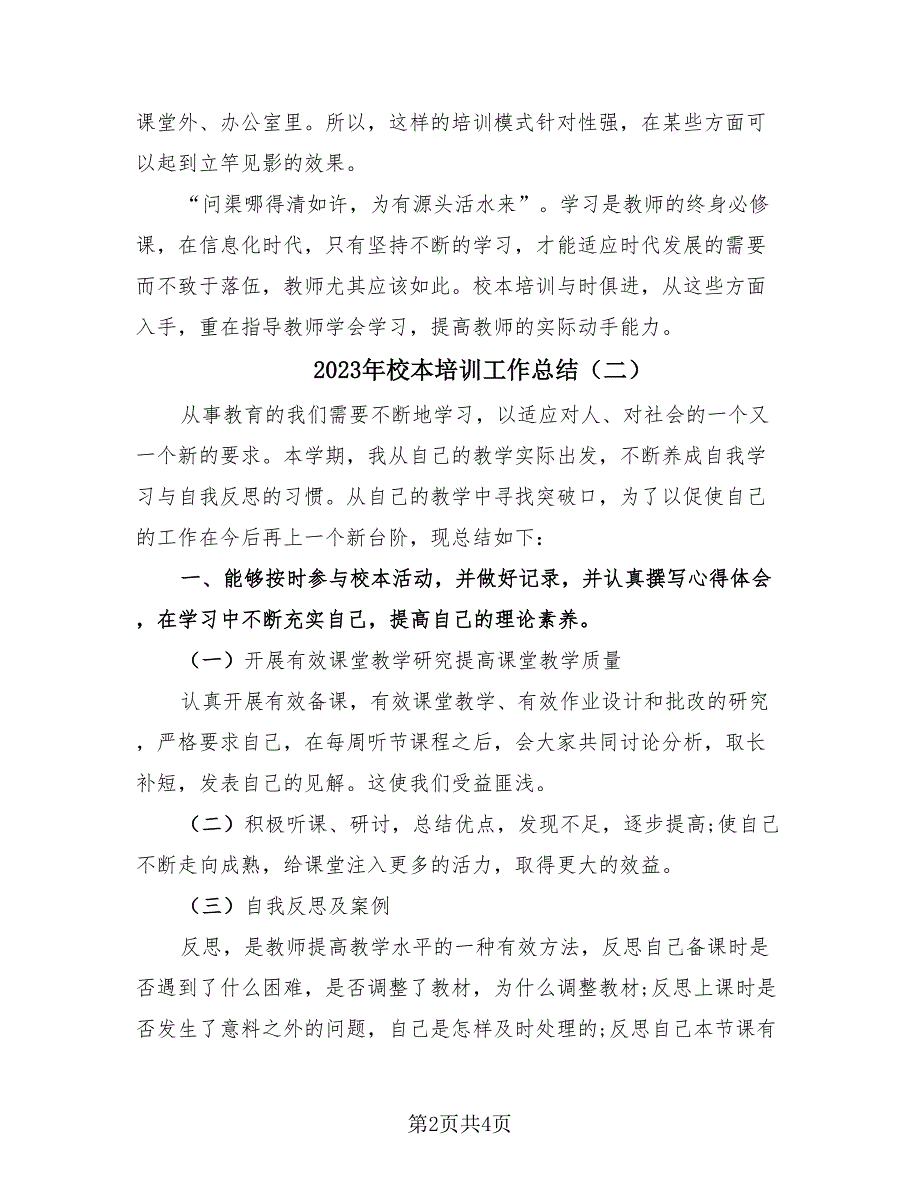 课堂外、办公室里。所以，这样的培训模式针对性强，在某些方面可
以起到立竿见影的效果。
“问渠哪得清如许，为有源头活水来”。学习是教师的终身必修
课，在信息化时代，只有坚持不断的学习，才能适应时代发展的需要
而不致于落伍，教师尤其应该如此。校本培训与时俱进，从这些方面
入手，重在指导教师学会学习，提高教师的实际动手能力。
2023年校本培训工作总结（二）
从事教育的我们需要不断地学习，以适应对人、对社会的一个又
一个新的要求。本学期，我从自己的教学实际出发，不断养成自我学
习与自我反思的习惯。从自己的教学中寻找突破口，为了以促使自己
的工作在今后再上一个新台阶，现总结如下：
一、能够按时参与校本活动，并做好记录，并认真撰写心得体会
，在学习中不断充实自己，提高自己的理论素养。
（一）开展有效课堂教学研究提高课堂教学质量
认真开展有效备课，有效课堂教学、有效作业设计和批改的研究
，严格要求自己，在每周听节课程之后，会大家共同讨论分析，取长
补短，发表自己的见解。这使我们受益匪浅。
（二）积极听课、研讨，总结优点，发现不足，逐步提高;使自己
不断走向成熟，给课堂注入更多的活力，取得更大的效益。
（三）自我反思及案例
反思，是教师提高教学水平的一种有效方法，反思自己备课时是
否遇到了什么困难，是否调整了教材，为什么调整教材;反思上课时是
否发生了意料之外的问题，自己是怎样及时处理的;反思自己本节课有
第2页共4页